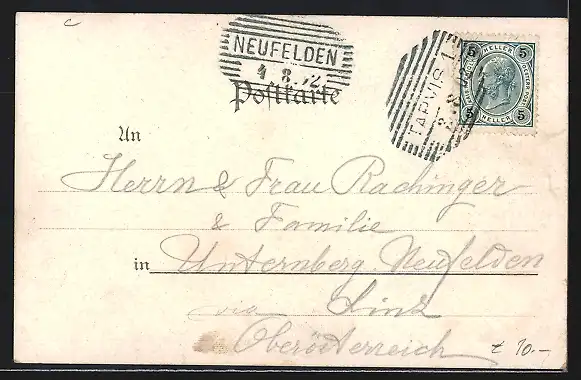 NEUFELDEN
4.8.
TARVIS 1
5 HELLER 5
5 HELLER 5
Postkarte
An
Herrn & Frau Rachinger
& Familie
in Unternberg Neufelden
via Linz
Oberösterreich
10.-